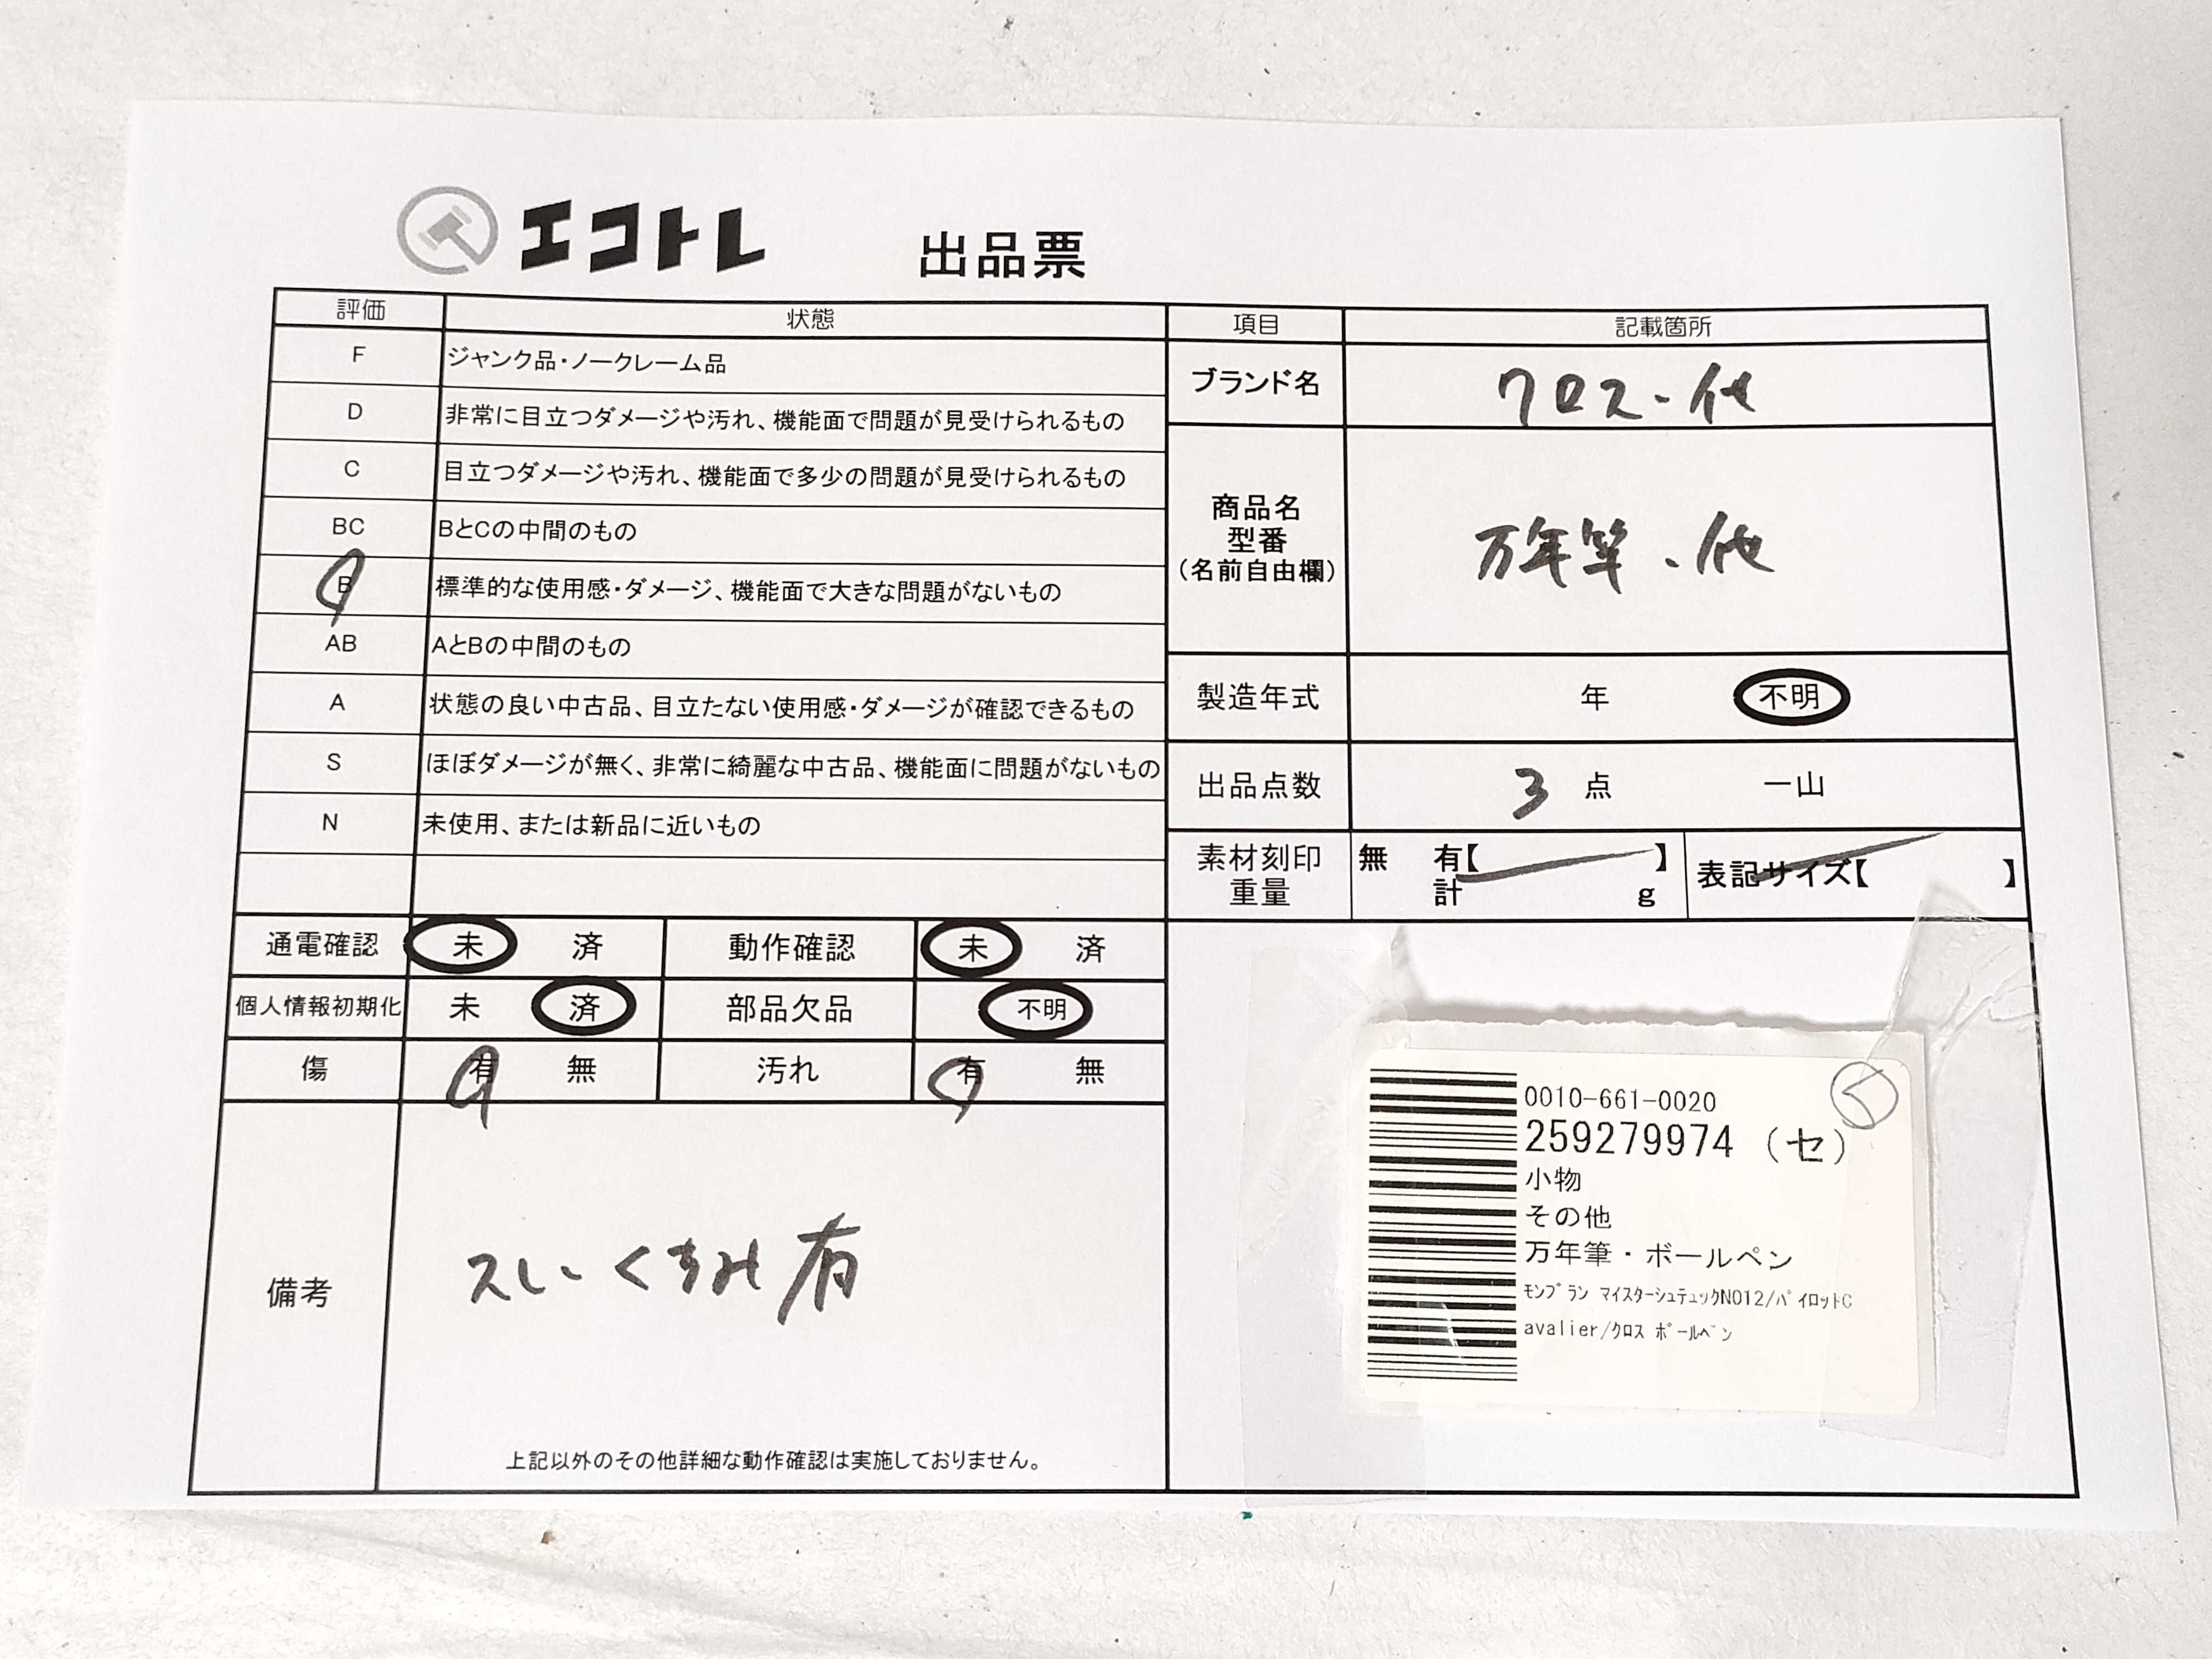 エコトレ 出品票
評価 状態
F ジャンク品・ノークレーム品
D 非常に目立つダメージや汚れ、機能面で問題が見受けられるもの
C 目立つダメージや汚れ、機能面で多少の問題が見受けられるもの
BC BとCの中間のもの
B 標準的な使用感・ダメージ、機能面で大きな問題がないもの
AB AとBの中間のもの
A 状態の良い中古品、目立たない使用感・ダメージが確認できるもの
S ほぼダメージが無く、非常に綺麗な中古品、機能面に問題がないもの
N 未使用、または新品に近いもの
項目 記載箇所
ブランド名 クロス・他
商品名
型番
(名前自由欄)
万年筆・他
製造年式 年 不明
出品点数 3 点 一山
素材刻印 無 有【 】 表記サイズ【 】
重量 計 g
通電確認 未 済 動作確認 未 済
個人情報初期化 未 済 部品欠品 不明
傷 有 無 汚れ 有 無
備考 スレ・くすみ有
上記以外のその他詳細な動作確認は実施しておりません。
0010-661-0020
259279974 (セ)
く
小物
その他
万年筆・ボールペン
ﾓﾝﾌﾞﾗﾝ ﾏｲｽﾀｰｼｭﾃｭｯｸNO12/ﾊﾟｲﾛｯﾄC
avalier/ｸﾛｽ ﾎﾞｰﾙﾍﾟﾝ